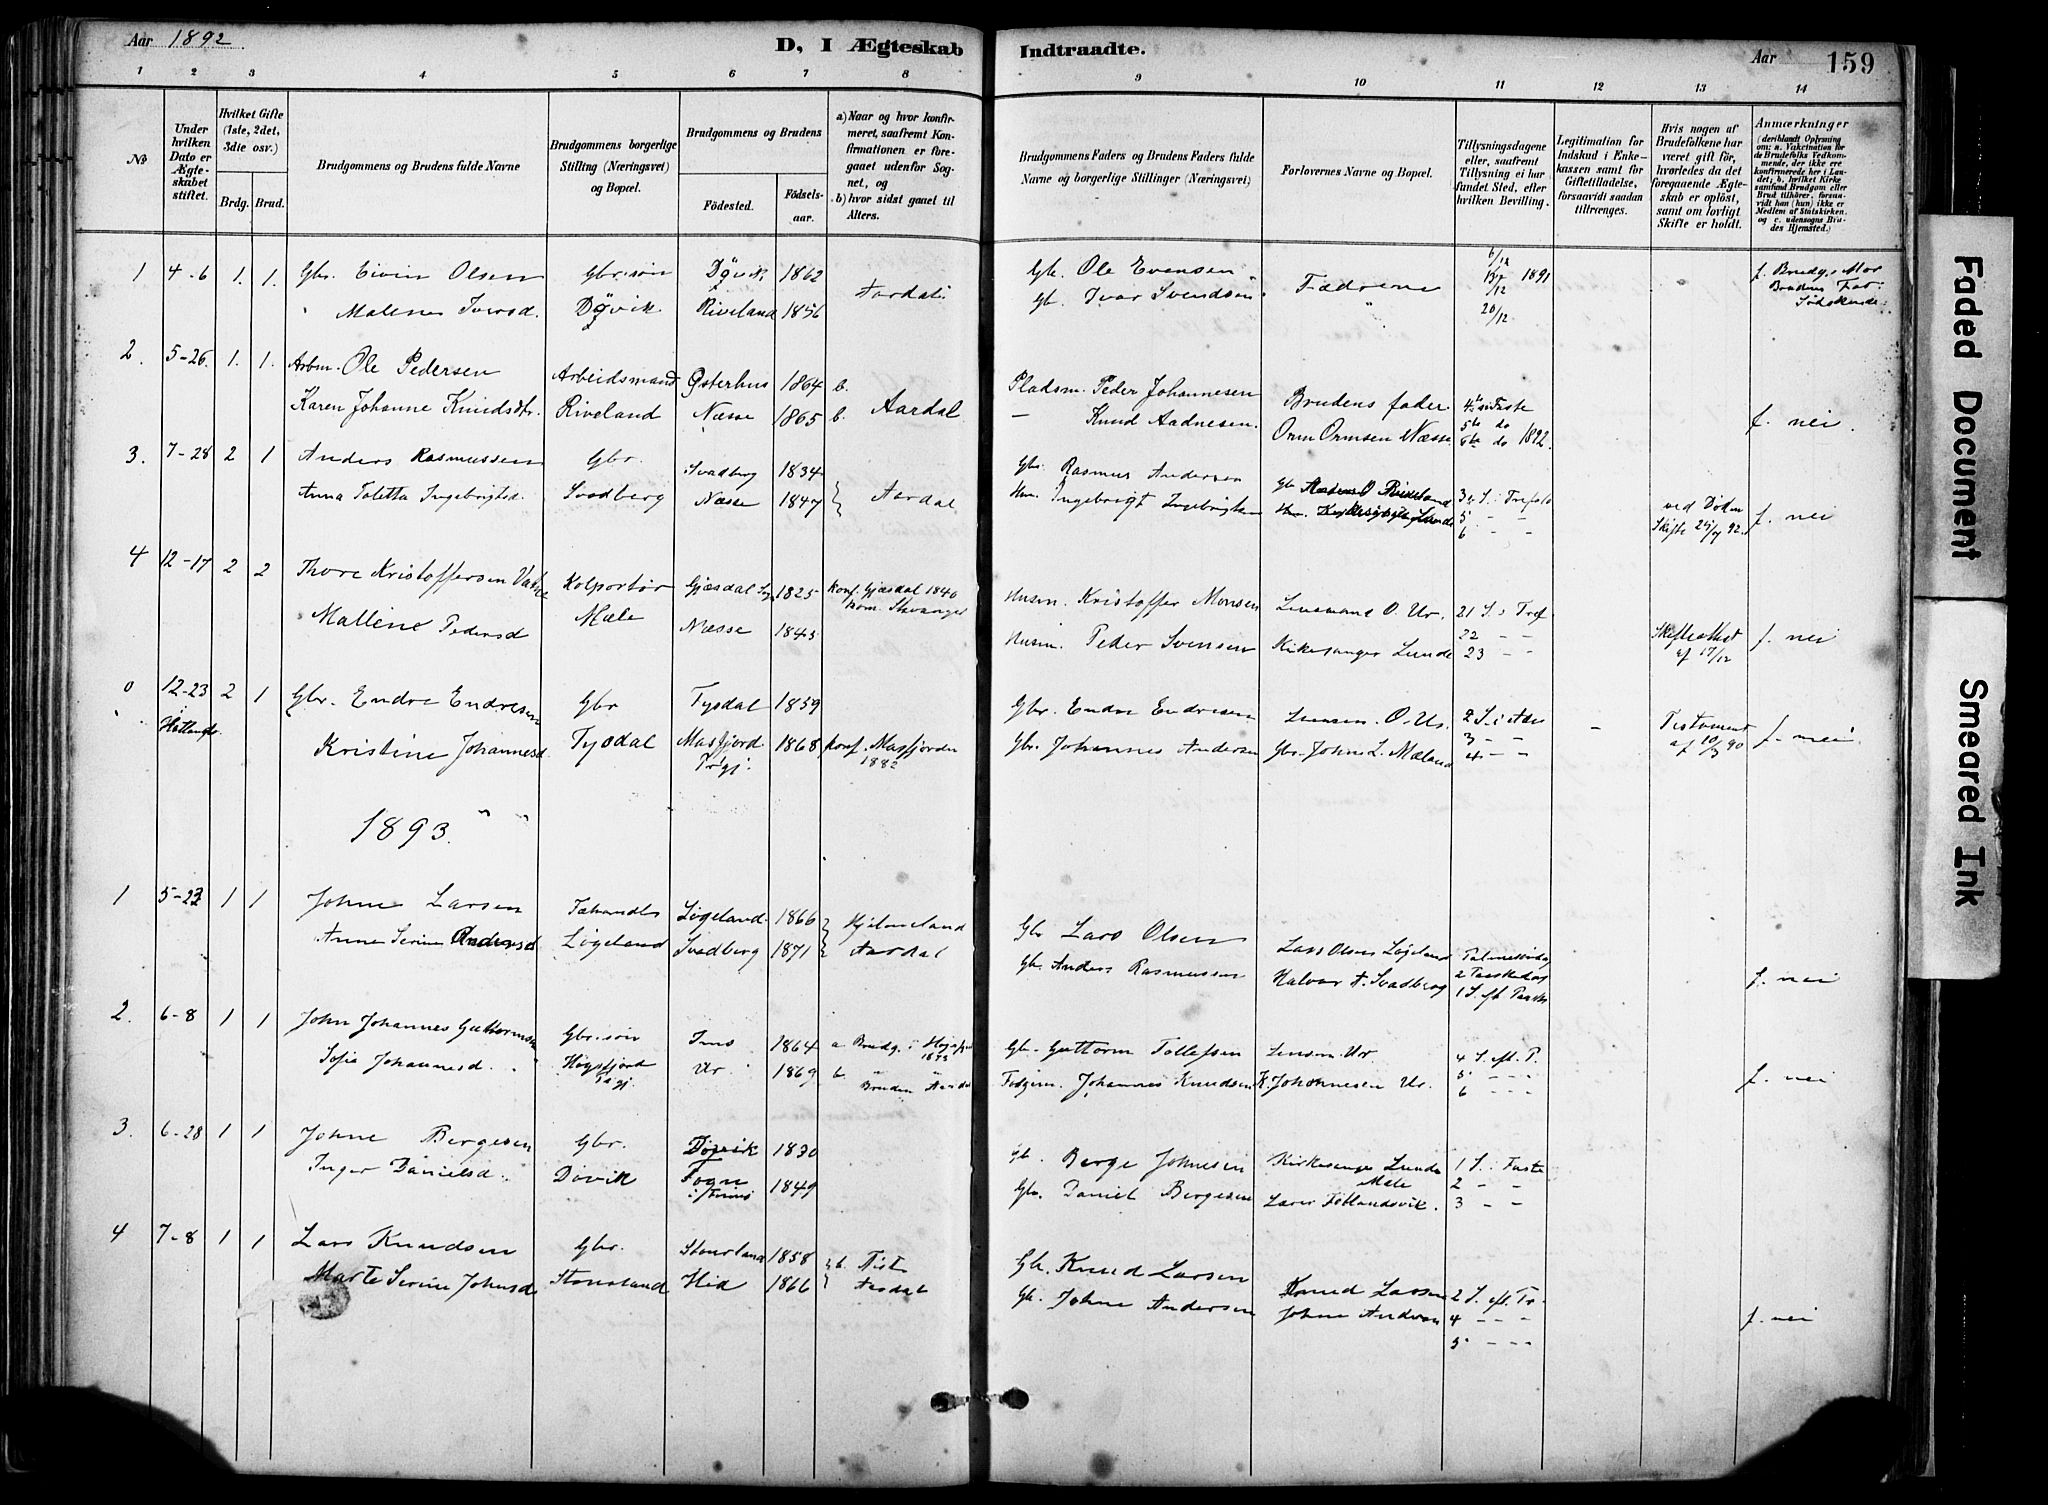 Aar 1892
D, I Ægteskab Indtraadte.
Aar
159
1 2 3 4 5 6 7 8 9 10 11 12 13 14
No
Under hvilken Dato er Ægteskabet stiftet.
Hvilket Gifte (1ste, 2det, 3die osv.)
Brdg. Brud.
Brudgommens og Brudens fulde Navne
Brudgommens borgerlige Stilling (Næringsvei) og Bopæl.
Brudgommens og Brudens
Födested.
Födselsaar.
a) Naar og hvor konfirmeret, saafremt Konfirmationen er foregaaet udenfor Sognet, og
b) hvor sidst gaaet til Alters.
Brudgommens Faders og Brudens Faders fulde Navne og borgerlige Stillinger (Næringsvei)
Forlovernes Navne og Bopæl.
Tillysningsdagene eller, saafremt Tillysning ei har fundet Sted, efter hvilken Bevilling.
Legitimation for Indskud i Enkekassen samt for Giftetilladelse, forsaavidt saadan tiltrænges.
Hvis nogen af Brudefolkene har været gift før, hvorledes da det foregaaende Ægteskab er oplöst, samt om lovligt Skifte er holdt.
Anmærkninger (deriblandt Oplysning om: a. Vakcination for de Brudefolks Vedkommende, der ikke ere konfirmerede her i Landet; b. hvilket Kirkesamfund Brudgom eller Brud tilhörer, forsaavidt han (hun) ikke er Medlem af Statskirken, og c. udensogns Brudes Hjemsted.)
1 4-6 1. 1. Gbr. Eivin Olsen Gbr.søn Døvik 1862 Aardal. Gb. Ole Evensen Fædrene 6/12 13/12 1891 f. Brudg. Mor
" Malene Iversd. Døvik Riveland 1856 Gb. Ivar Svendsen " 20/12 Brudens Far Södskende.
2. 5-26. 1. 1. Arbm. Ole Pedersen Arbeidsmand Østerhus 1864 b. Pladsm. Peder Johannesen Brudens fader 4de S i Faste
Karen Johanne Knudsdtr. Riveland Næsse 1865 b. Aardal — Knud Aadnesen. Orm Ormsen Næsse 5te do 6te do 1892. f. nei.
3. 7-28 2 1 Anders Rasmussen Gbr. Svadberg 1834 Gbr. Rasmus Andersen 3 S. i Trefold
Anna Toletta Ingebrigtsd. Svadberg Næsse 1847 Aardal Hm. Ingebrigt Ingebrigtsen 5 - - 6 - - ved Døden Skifte 92. f. nei
4 12-17 2 2 Thore Kristoffersen Kolportør Gjæsdal 1825 konf. Gjæsdal 1840 Husm. Kristoffer Monsen Lensmand O. Ur. 21 S. i Tref
Mallene Pedersd Mæle Næsse 1845 Husm. Peder Svensen Kirkesanger Lunde 22 - - 23 - - Skifteattest af 17/12 f. nei
12-23 2 1 Gbr. Endre Endresen Gbr Tysdal 1859 Gbr. Endre Endresen Lensm. O. Ur. 2 S. i Adv
Kristine Johannesd. Tysdal Masfjord Prgj. 1868 konf. Masfjorden 1882 Gbr. Johannes Andersen Gbr. Johne L. Mæland 3 - - 4 - - - Testament af 10/3 90 f. nei.
1893.
1 5-23 1 1 Johne Larsen Løgeland 1866 Hjelmeland Gbr Lars Olsen Lars Olsen Løgeland
Anne Serine Andersd Løgeland Svadberg 1871 Aardal Gb. Anders Rasmussen Halvor A. Svadberg 2 Paaskedag 1 S. eft. Paaske f. nei
2. 6-8 1 1 John Johannes Guttormsen Gbr.søn Ims 1864 a Brudg. i Høgsfjord Gb. Guttorm Tollefsen Lensm. Ur 4 S. eft. P.
Sofie Johannesd. Høgsfjord Prgj. Ur 1869 b. Bruden Aardal Johannes Knudsen K. Johannesen Ur. 5 - - - 6 - - - f. nei
3. 6-28 1 1 Johne Bergesen Gbr. Døvik 1830 Gb. Berge Johnesen Kirkesanger Lunde Mæle 1 S. i Faste
Inger Danielsd. Døvik Fogn 1849 Gbr. Daniel Bergesen Lærer 2 - - 3 - -
4 7-8 1 1 Lars Knudsen Gbr. 1858 b. Fister Gb. Knud Larsen Knud Larsen 2 S. eft. Tr.
Marte Serine Johnsd Hid 1866 Aardal Gb. Johne Andersen Johne Andersen 4 - - - 5 - - - f. nei
Faded Document
Smeared Ink